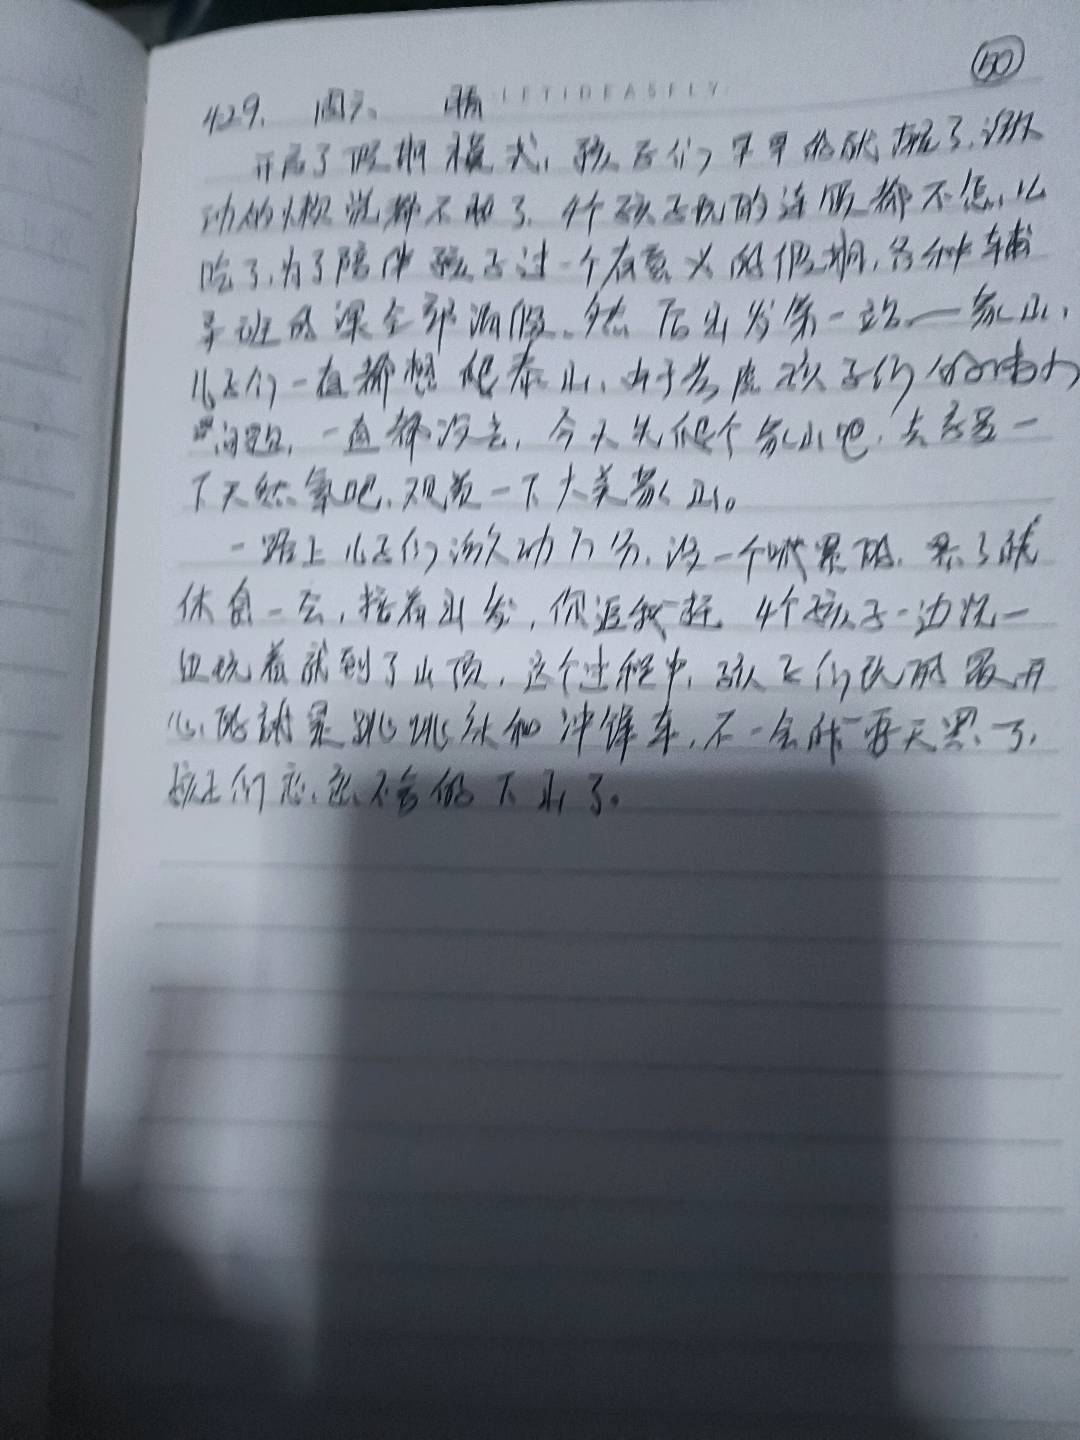 50
LETIDEASFLY
4.29. 周六 晴
开启了假期模式,孩子们早早的就起了,激
动的懒觉都不睡了,4个孩子玩的连饭都不怎么
吃了,为了陪伴孩子过一个有意义的假期,各种辅
导班的课全部请假,然后出发第一站—象山,
儿子们一直都想爬泰山,由于考虑孩子们的体力
问题,一直都没去,今天先爬个象山吧,去享受一
下天然氧吧,观赏一下大美象山。
一路上儿子们激动万分,没一个喊累的,累了就
休息一会,接着出发,你追我赶 4个孩子一边说一
边玩着就到了山顶,这个过程中,孩子们玩的最开
心的就是跳跳床和冲锋车,不一会时间天黑了,
孩子们恋恋不舍的下山了。